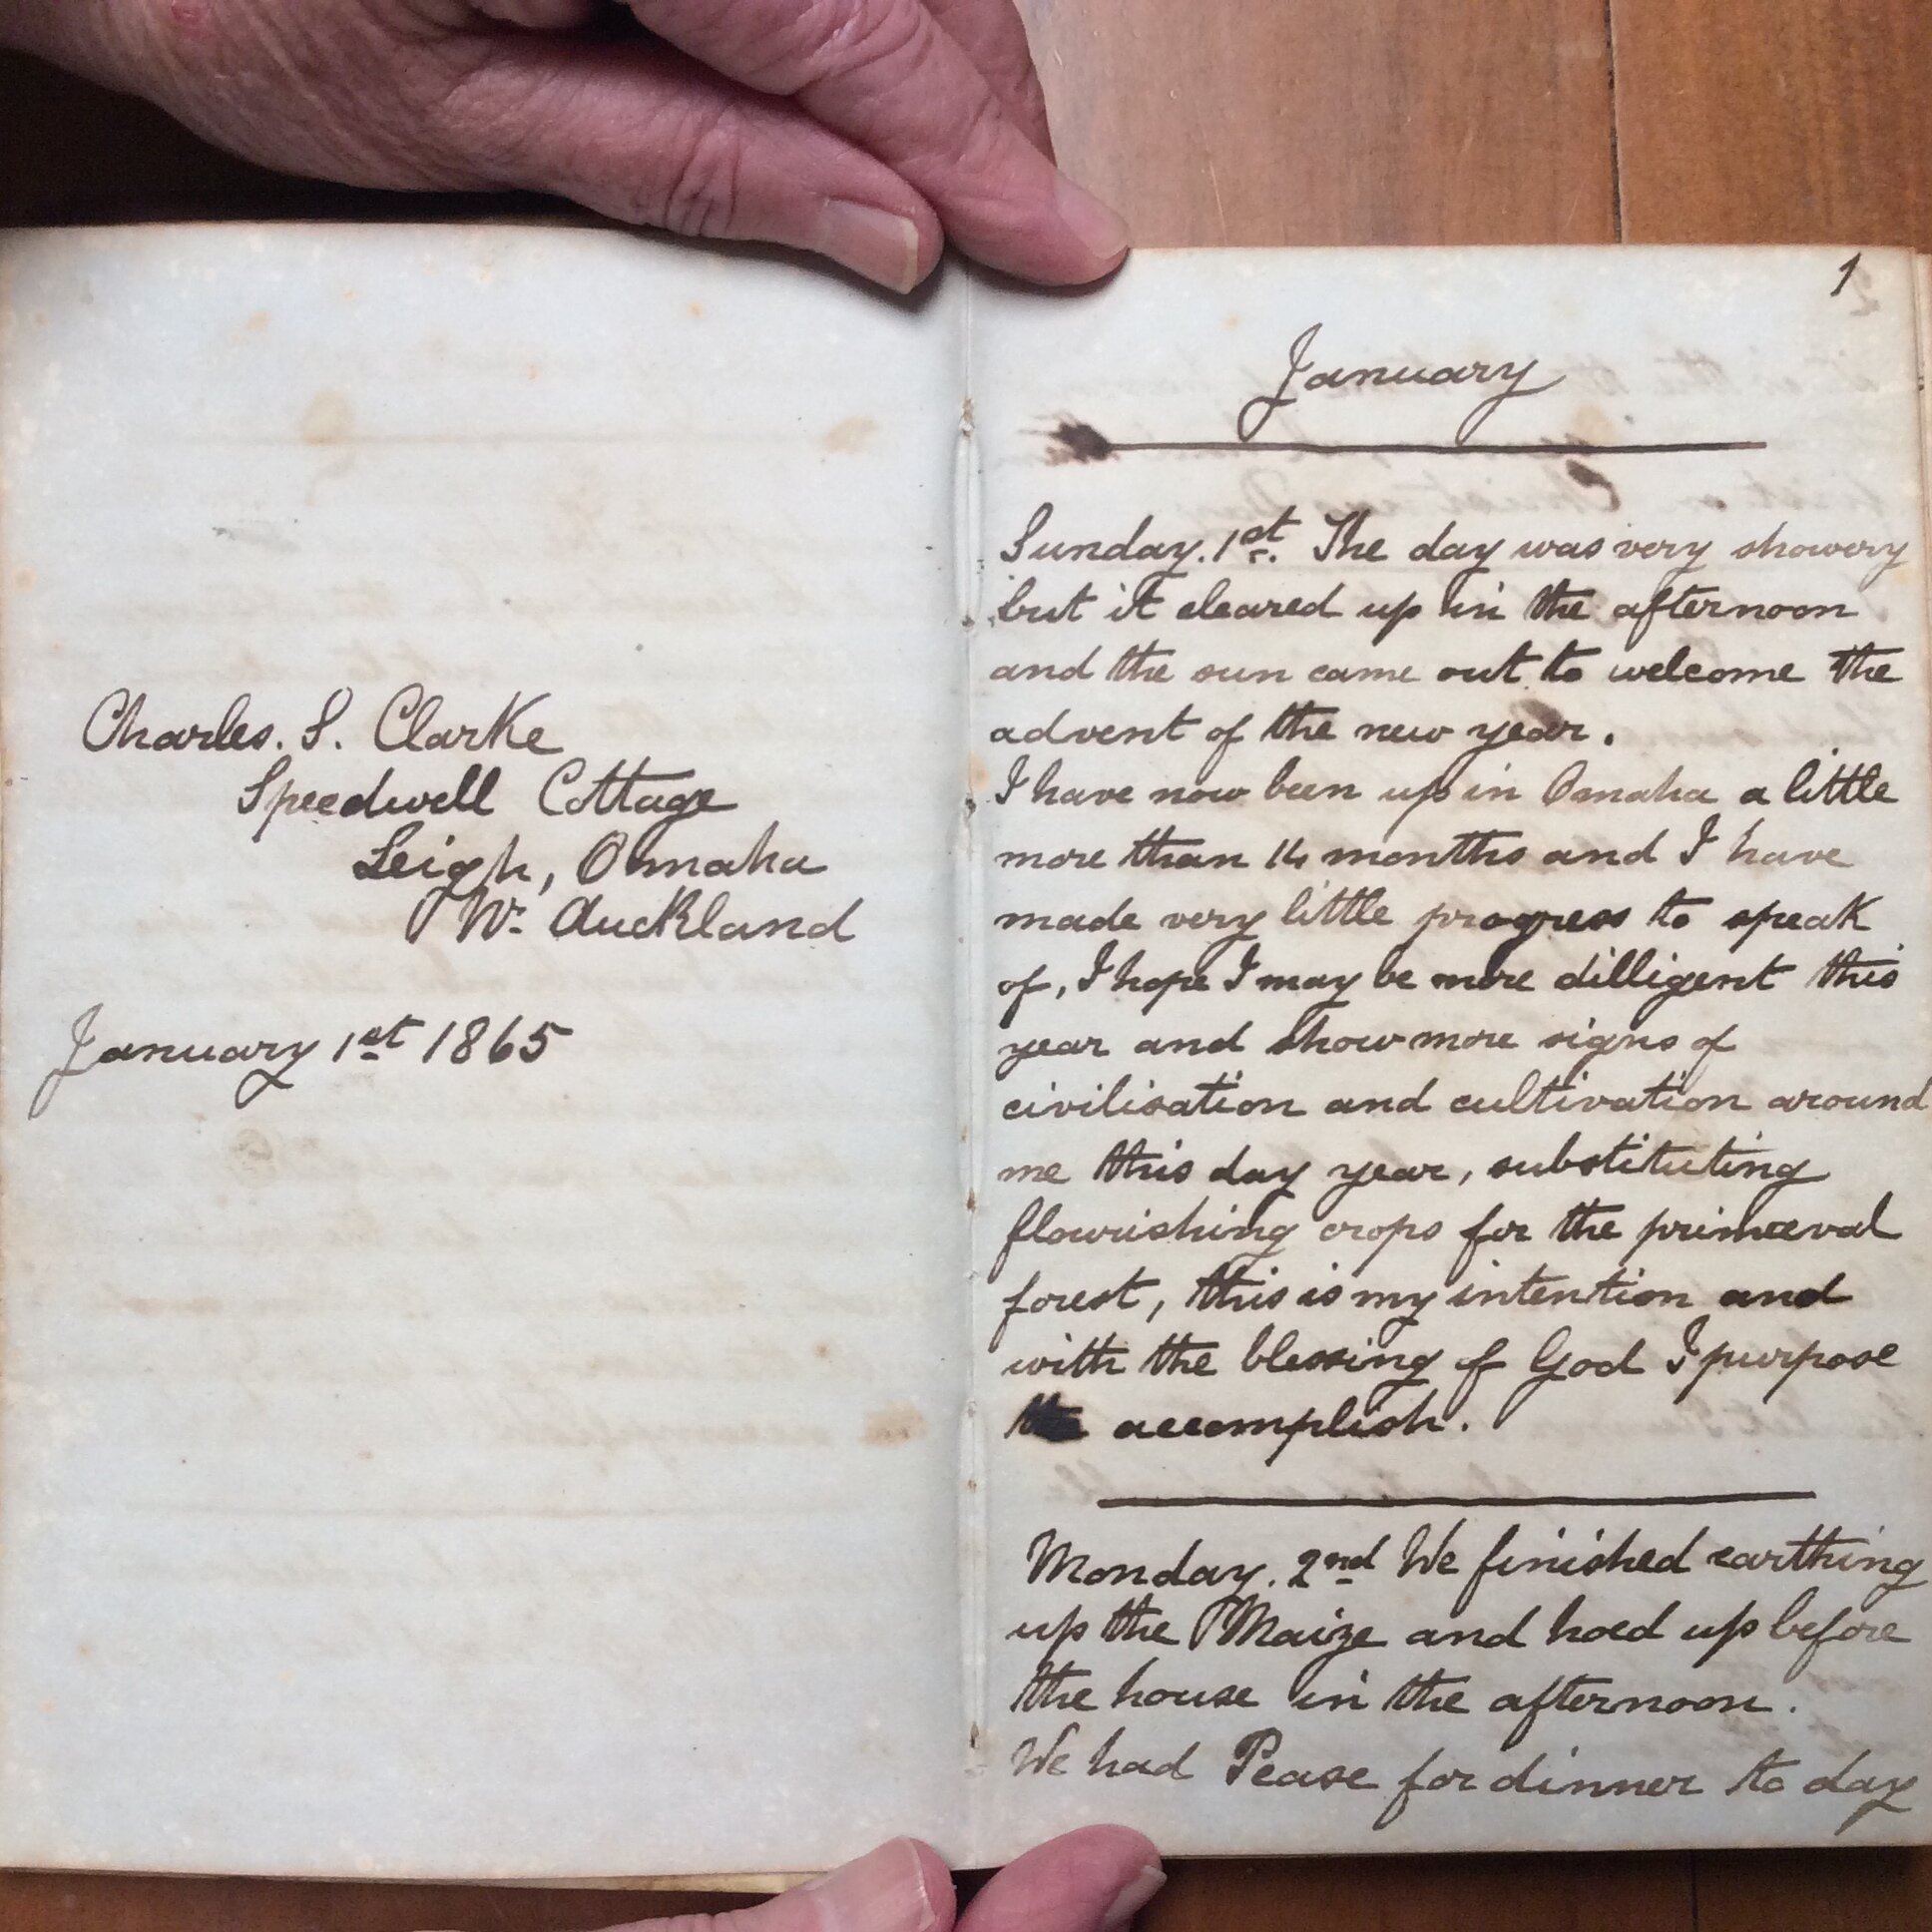 Charles. S. Clarke
Speedwell Cottage
Leigh, Omaha
Nr. Auckland
January 1st 1865
1
January
Sunday. 1st. The day was very showery
but it cleared up in the afternoon
and the sun came out to welcome the
advent of the new year.
I have now been up in Omaha a little
more than 14 months and I have
made very little progress to speak
of, I hope I may be more dilligent this
year and show more signs of
civilisation and cultivation around
me this day year, substituting
flourishing crops for the primeval
forest, this is my intention and
with the blessing of God I purpose
to accomplish.
Monday. 2nd We finished earthing
up the Maize and hoed up before
the house in the afternoon.
We had Pease for dinner to day